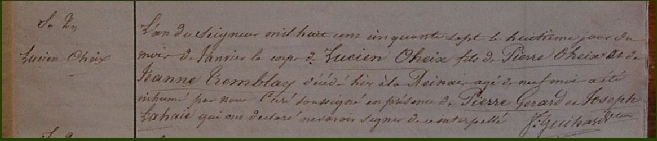 S. 2
Lucien Oheix
L'an du Seigneur mil huit cent cinquante sept le huitième jour du
mois de Janvier le corps de Lucien Oheix fils de Pierre Oheix et de
Jeanne Tremblay décédé hier à la agé de neuf mois a été
inhumé par nous Curé soussigné en présence de Pierre Gerard et Joseph
Lahaie qui ont declaré ne savoir signer de ce interpellé